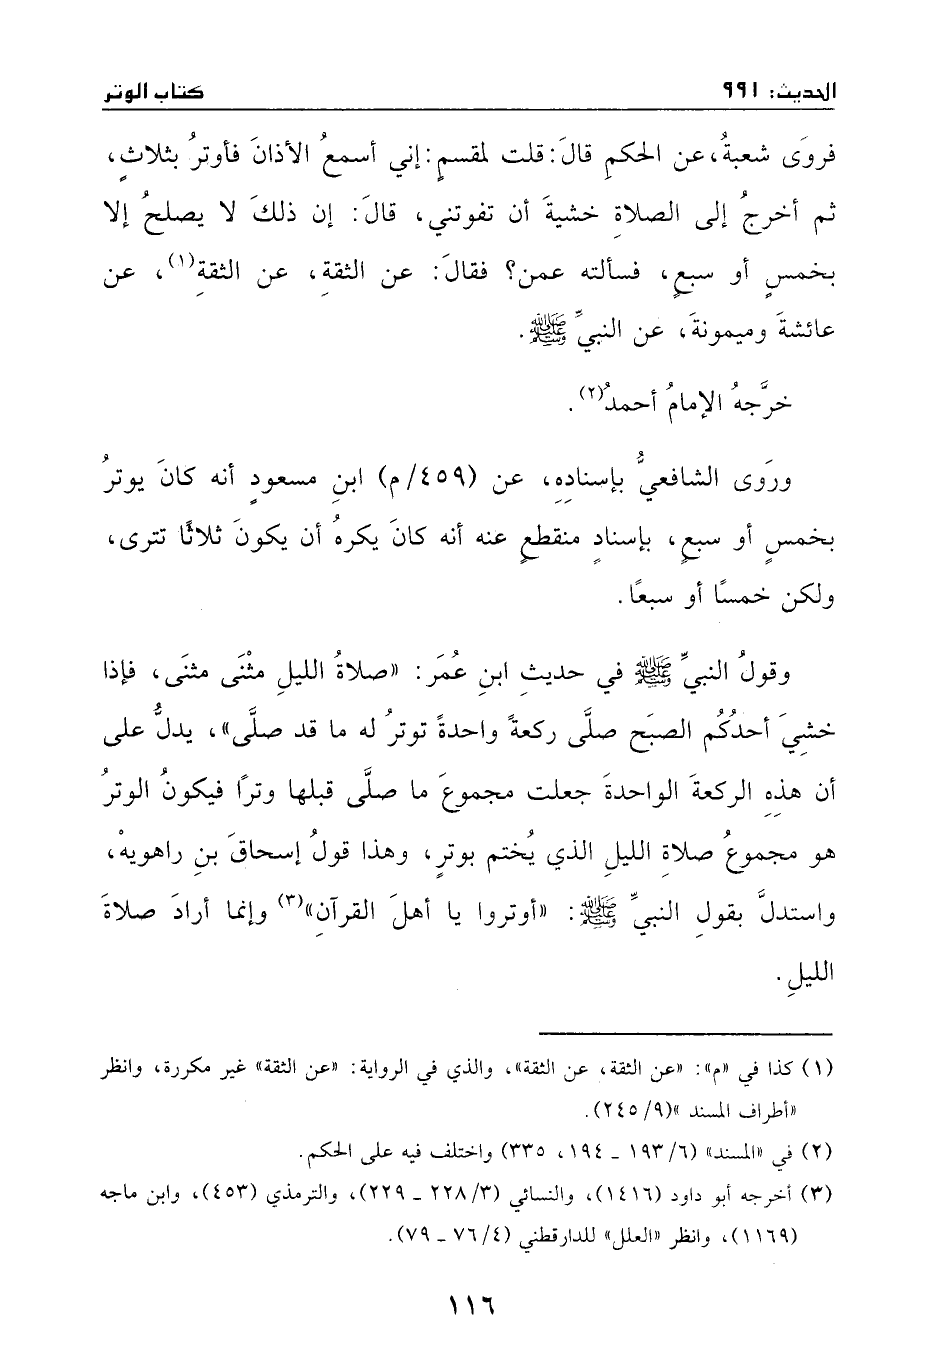 الحديث: ٩٩١ كتاب الوتر
فروَى شعبةُ، عن الحكمِ قالَ: قلت لمقسمٍ: إني أسمعُ الأذانَ فأوترُ بثلاثٍ،
ثم أخرجُ إلى الصلاةِ خشيةَ أن تفوتني، قالَ: إن ذلكَ لا يصلحُ إلا
بخمسٍ أو سبعٍ، فسألته عمن؟ فقالَ: عن الثقةِ، عن الثقةِ(١)، عن
عائشةَ وميمونةَ، عن النبيِّ ﷺ.
خرَّجهُ الإمامُ أحمدُ(٢).
وروَى الشافعيُّ بإسنادِهِ، عن (٤٥٩/م) ابنِ مسعودٍ أنه كانَ يوترُ
بخمسٍ أو سبعٍ، بإسنادٍ منقطعٍ عنه أنه كانَ يكرهُ أن يكونَ ثلاثًا تترى،
ولكن خمسًا أو سبعًا.
وقولُ النبيِّ ﷺ في حديثِ ابنِ عُمَرَ: «صلاةُ الليلِ مثْنَى مثنَى، فإذا
خشِيَ أحدُكُم الصبَح صلَّى ركعةً واحدةً توترُ له ما قد صلَّى»، يدلُّ على
أن هذِهِ الركعةَ الواحدةَ جعلت مجموعَ ما صلَّى قبلها وترًا فيكونُ الوترُ
هو مجموعُ صلاةِ الليلِ الذي يُختم بوترٍ، وهذا قولُ إسحاقَ بنِ راهويهْ،
واستدلَّ بقولِ النبيِّ ﷺ: «أوتروا يا أهلَ القرآنِ»(٣) وإنما أرادَ صلاةَ
الليلِ.
(١) كذا في «م»: «عن الثقة، عن الثقة»، والذي في الرواية: «عن الثقة» غير مكررة، وانظر
«أطراف المسند »(٩/ ٢٤٥).
(٢) في «المسند» (٦/ ١٩٣ ـ ١٩٤، ٣٣٥) واختلف فيه على الحكم.
(٣) أخرجه أبو داود (١٤١٦)، والنسائي (٣/ ٢٢٨ ـ ٢٢٩)، والترمذي (٤٥٣)، وابن ماجه
(١١٦٩)، وانظر «العلل» للدارقطني (٤/ ٧٦ ـ ٧٩).
١١٦